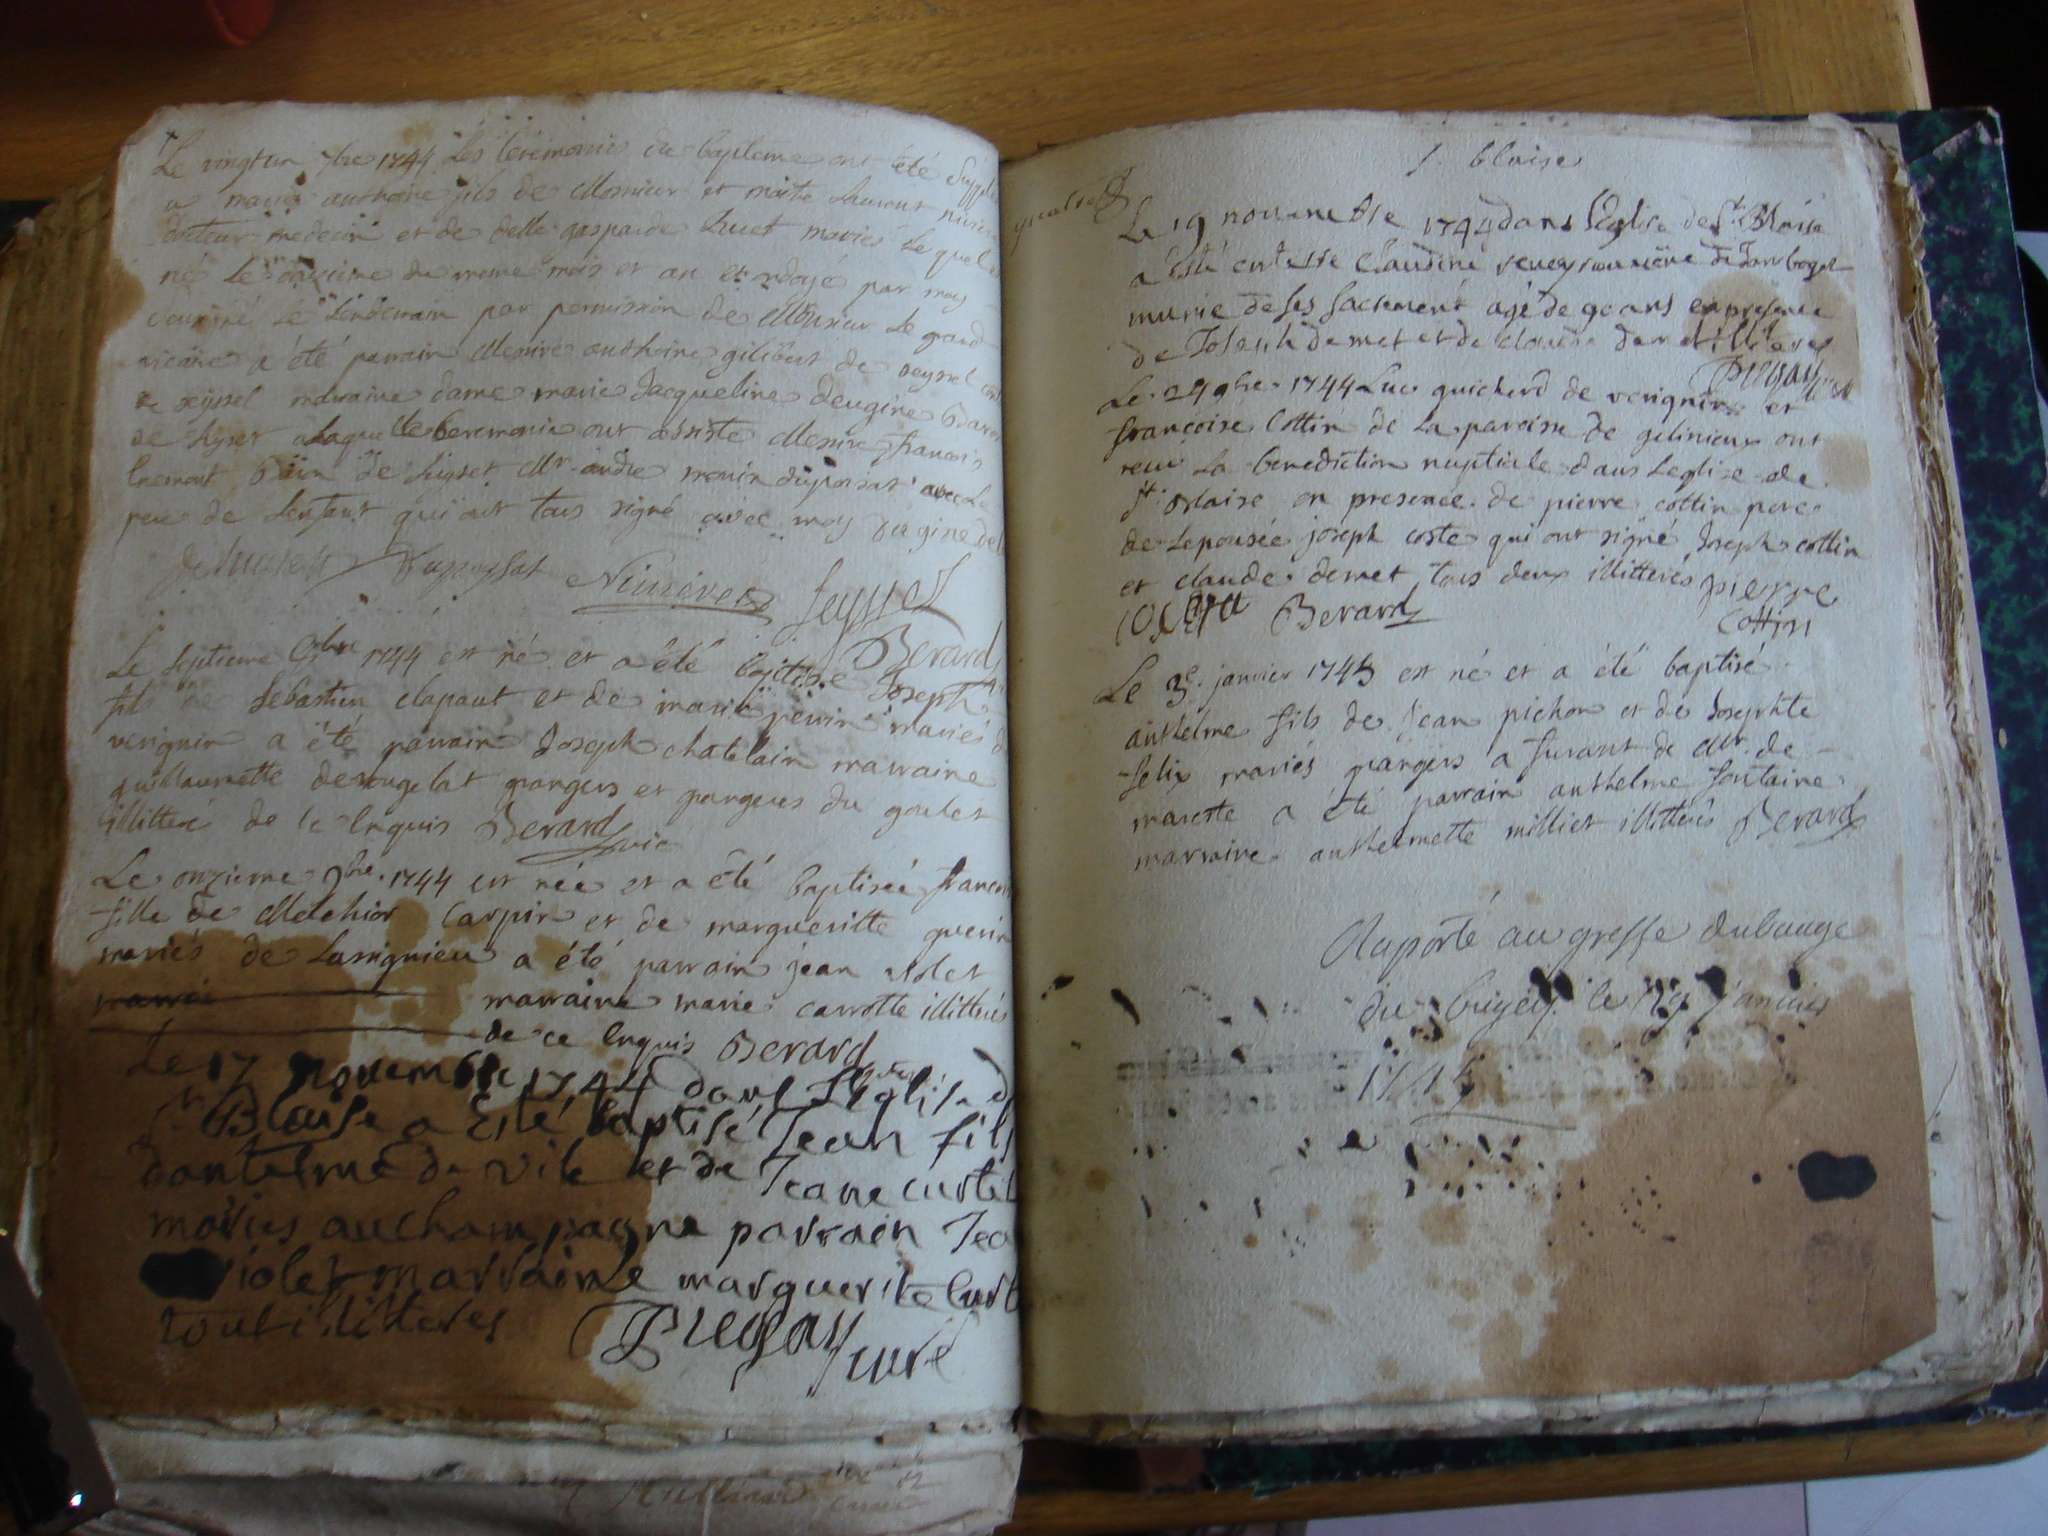 Le vingtun 7bre 1744 Les Ceremonies du bapteme ont été
a marie anthoine fils de Monsieur et maitre Laurent
docteur medecin et de delle gasparde Luuet mariés Le quel
né Le onzieme du meme mois et an et ondoyé par moy
Le Lendemain par permission de Monsieur Le grand
vicaire a été parrain Messire anthoine gilibert de seyssel
de seijssel marraine dame marie Jacqueline deugine
a Laquelle Ceremonie ont assisté Messire francois
Mr andre dujposat avec Le
pere de Lenfant qui ont tous signé avec moy
Dujpossat Seyssel
Berard
Le septieme 9bre 1744 est né et a été baptisé Joseph
fils de Sebastien clapaut et de marie perrin mariés
verignin a été parrain Joseph chatelain marraine
guillaumette derougelat grangers et grangeres du goulet
illitteré de ce Enquis Berard vic
Le onzieme 9bre 1744 est née et a été baptisée
fille de Melchior Carpin et de margueritte guerin
mariés de Lassignieu a été parrain jean violet
marraine marie carrotte illitterés
de ce Enquis Berard
Le 17 novembre 1744 dans L'Eglise d
St Blaise a Esté baptisé Jean fils
dantelme de vile et de Jeane curtil
mariés au champagne parrain Jea
violet marraine marguerite Curt
tout illitteres Pugay curé
S. blaise
Le 19 novembre 1744 dans l'Eglise de St Blaise
a esté enterré Claudine
munie de ses sacrement agé de 90 ans en presence
de Joseph demet et de Claude demet illiteres
Pugay curé
Le 24 9bre 1744 Luc guicherd de verignin et
francoise Cottin de La paroisse de gelinieux ont
recu La benediction nuptiale dans Leglise de
St Blaise en presence de pierre cottin pere
de Lepousée joseph coste qui ont signé Joseph cottin
et claude demet tous deux illitterés pierre
Coste Berard cottin
Le 3e janvier 1745 est né et a été baptisé
anthelme fils de jean pichon et de Josephte
felix mariés grangers a furant de Mr. de
mareste a été parrain anthelme fontaine
marraine anthelmette milliet illitterés Berard
Raporté au greffe dubauge
du bugey le 29 janvier
1745